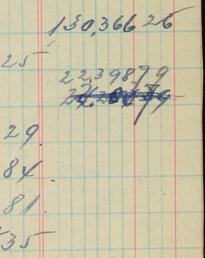 130,366 26
25
2239879
29
84
81
35